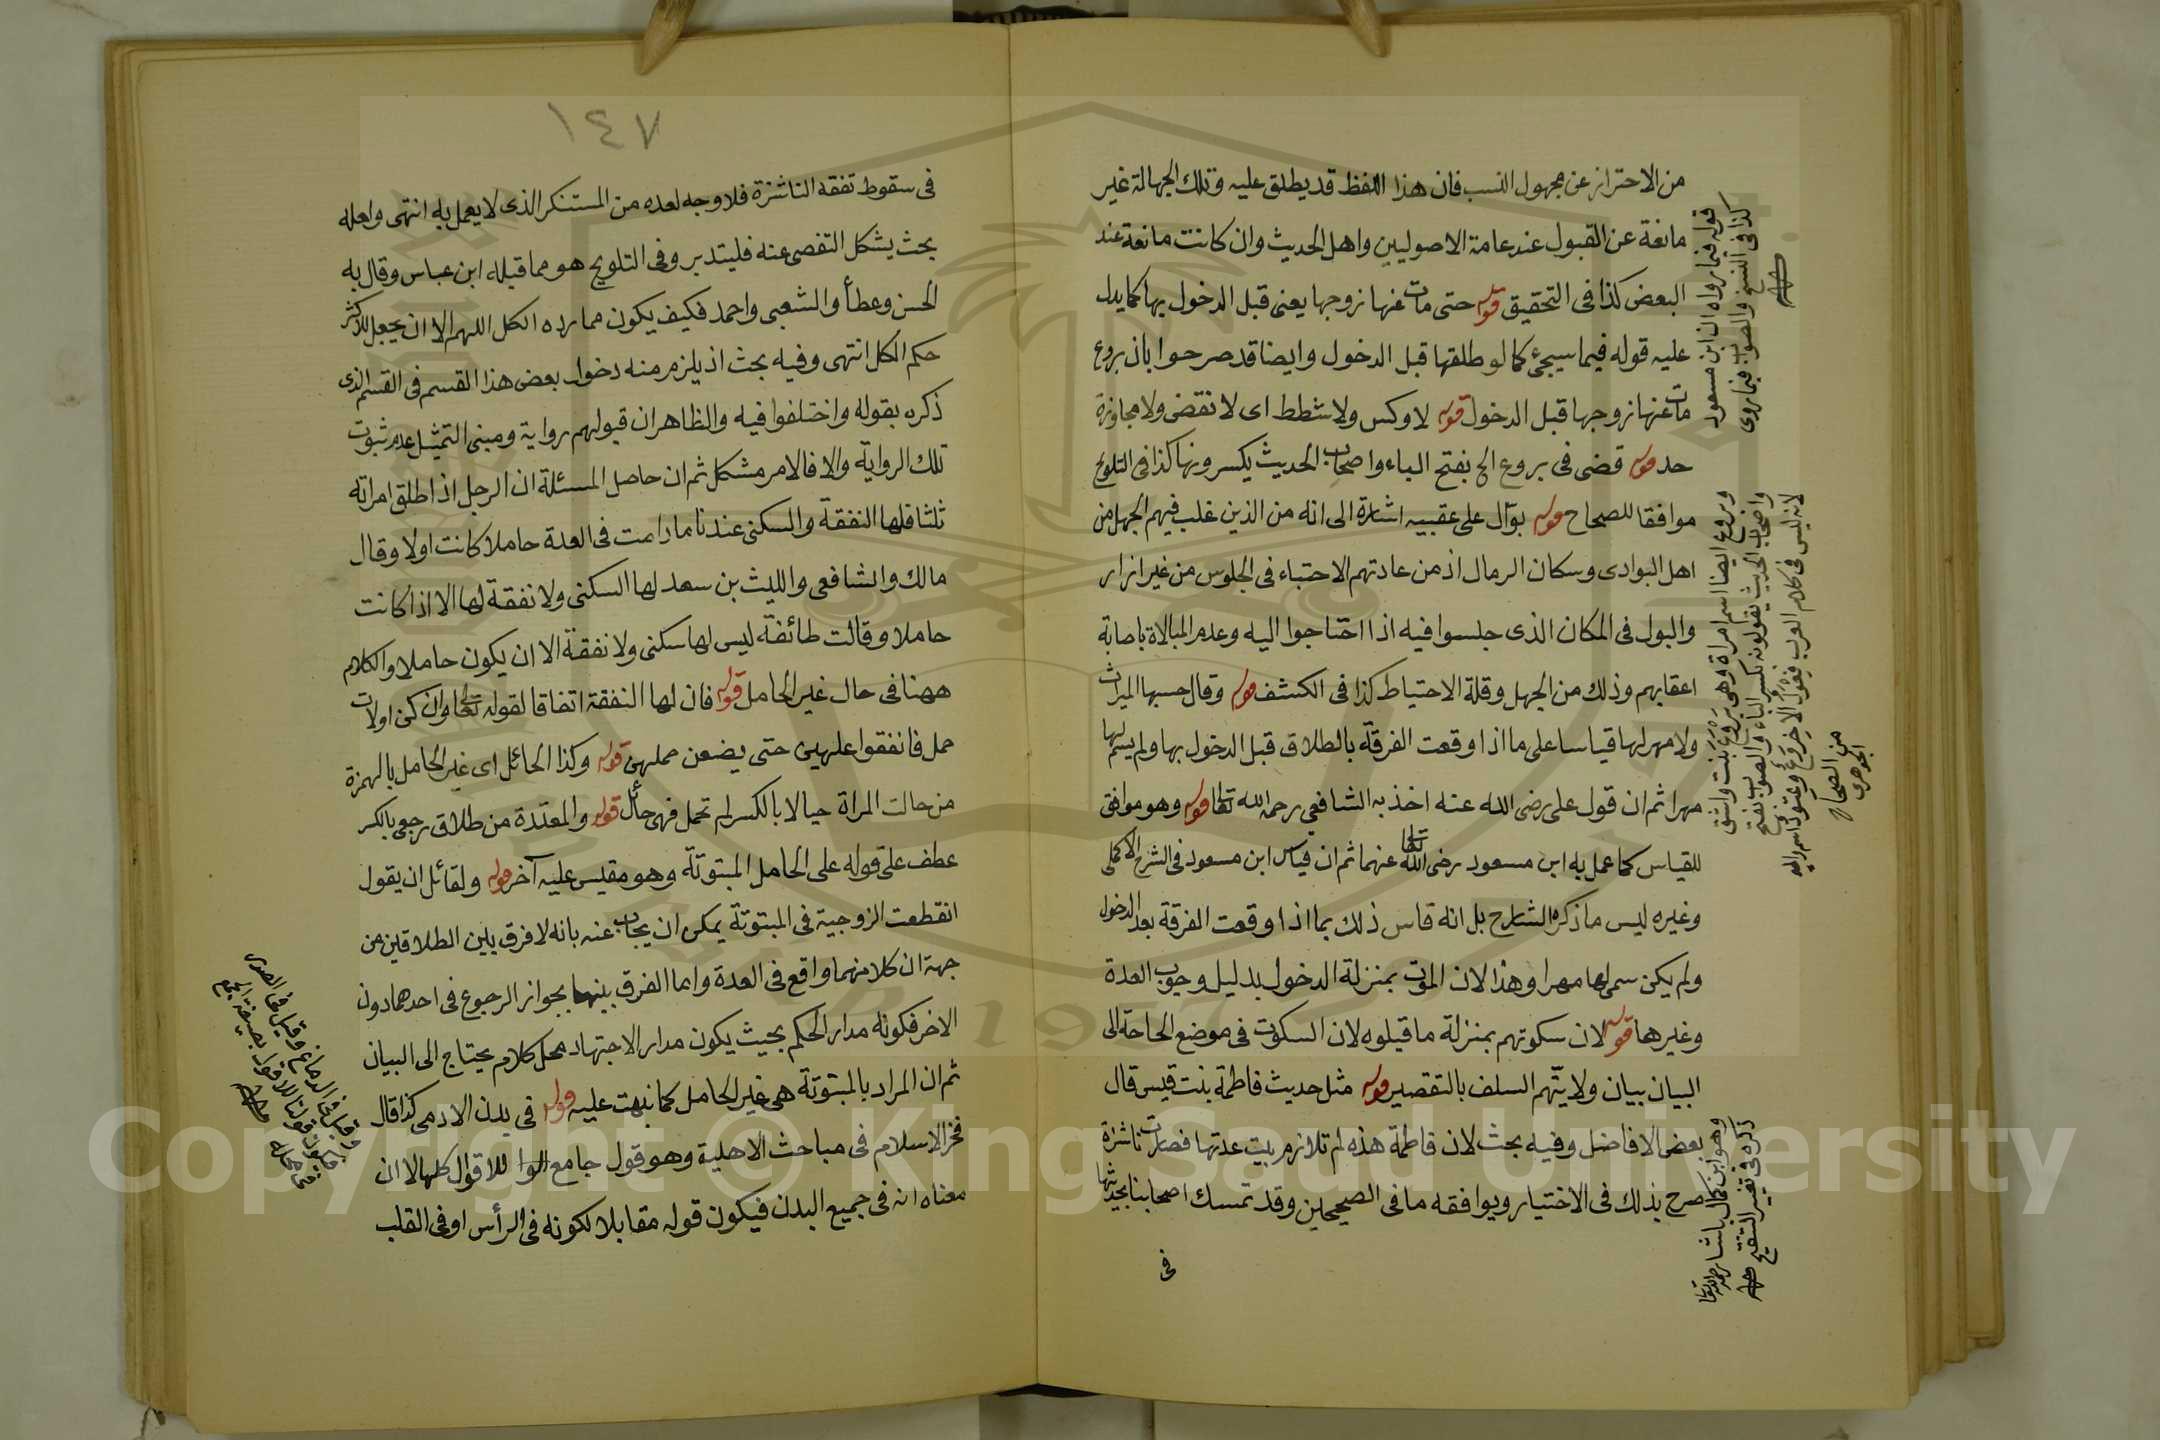 من الاحتراز عن مجهول النسب فان هذا اللفظ قد يطلق عليه وتلك الجهالة غير
مانعة عن القبول عند عامة الاصوليين واهل الحديث وان كانت مانعة عند
البعض كذا فى التحقيق قوله حتى مات عنها زوجها يعنى قبل الدخول بها كما يدل
عليه قوله فيما سيجئ كما لو طلقها قبل الدخول وايضا قد صرحوا بان بروع
مات عنها زوجها قبل الدخول قوله لا وكس ولا شطط اى لا نقض ولا مجاوزة
حد قوله قضى فى بروع الخ بفتح الباء واصحاب الحديث يكسرونها كذا فى التلويح
موافقا للصحاح قوله بوآل على عقبيه اشارة الى انه من الذين غلب فيهم الجهل من
اهل البوادى وسكان الرمال اذ من عادتهم الاحتباء فى الجلوس من غير ازار
والبول فى المكان الذى جلسوا فيه اذا احتاجوا اليه وعدم المبالاة باصابة
اعقابهم وذلك من الجهل وقلة الاحتياط كذا فى الكشف قوله وقال حسبها الميراث
ولا مهر لها قياسا على ما اذا وقعت الفرقة بالطلاق قبل الدخول بها ولم يسم لها
مهرا ثم ان قول على رضى الله عنه اخذ به الشافعى رحمه الله تعا قوله وهو موافق
للقياس كما عمل به ابن مسعود رضى الله تعا عنهما ثم ان قياس ابن مسعود فى الشرح الاكملى
وغيره ليس ما ذكره الشارح بل انه قاس ذلك بما اذا وقعت الفرقة بعد الدخول
ولم يكن سمى لها مهرا وهذا لان الموت بمنزلة الدخول بدليل وجوب العدة
وغيرها قوله لان سكوتهم بمنزلة ما قبلوه لان السكوت فى موضع الحاجة الى
البيان بيان ولا يتهم السلف بالتقصير قوله مثل حديث فاطمة بنت قيس قال
بعض الافاضل وفيه بحث لان فاطمة هذه لم تلازم بيت عدتها فصارت ناشزة
صرح بذلك فى الاختيار ويوافقه ما فى الصحيحين وقد تمسك اصحابنا بحديثها
فى
قوله فيما رواه ان ابن مسعود
كذا فى النسخ والصواب فيما روى
وبروع ايضا اسم امراة وهى بروع بنت واشق
واصحاب الحديث يقولونه بكسر الباء والصواب بفتح
لانه ليس فى كلام العرب فعول الا خروع وعتود اسم
من الصحاح
الجوهرى
وهو ابن كمال باشا رحمه الله تعا
ذكره فى تغيير التنقيح
١٤٧
فى سقوط نفقة الناشزة فلا وجه لعده من المستنكر الذى لا يعمل به انتهى ولعله
بحث يشكل التفصى عنه فليتدبر وفى التلويح هو مما قبله ابن عباس وقال به
الحسن وعطأ والشعبى واحمد فكيف يكون مما رده الكل اللهم الا ان يجعل للاكثر
حكم الكل انتهى وفيه بحث اذ يلزم منه دخول بعض هذا القسم فى القسم الذى
ذكره بقوله واختلفوا فيه والظاهر ان قبولهم رواية ومبنى التمثيل عدم ثبوت
تلك الرواية والا فالامر مشكل ثم ان حاصل المسئلة ان الرجل اذا طلق امراته
ثلثا فلها النفقة والسكنى عندنا ما دامت فى العدة حاملا كانت اولا وقال
مالك والشافعى والليث بن سعد لها السكنى ولا نفقة لها الا اذا كانت
حاملا وقالت طائفة ليس لها سكنى ولا نفقة الا ان يكون حاملا والكلام
ههنا فى حال غير الحامل قوله فان لها النفقة اتفاقا لقوله تعا وان كن اولات
حمل فانفقوا عليهن حتى يضعن حملهن قوله وكذا الحائل اى غير الحامل بالهمزة
من حالت المراة حيالا بالكسر لم تحمل فهى حائل قوله والمعتدة من طلاق رجعى بالكسر
عطف على قوله على الحامل المبتوتة وهو مقيس عليه آخر قوله ولقائل ان يقول
انقطعت الزوجية فى المبتوتة يمكن ان يجاب عنه بانه لا فرق بين الطلاقين من
جهة ان كلا منهما واقع فى العدة واما الفرق بينهما بجواز الرجوع فى احدهما دون
الاخر فكونه مدار الحكم بحيث يكون مدار الاجتهاد محل كلام يحتاج الى البيان
ثم ان المراد بالمبتوتة هى غير الحامل كما نبهت عليه قوله فى بدن الادمى كذا قال
فخر الاسلام فى مباحث الاهلية وهو قول جامع للاقوال كلها الا ان
معناه انه فى جميع البدن فيكون قوله مقابلا لكونه فى الرأس او فى القلب